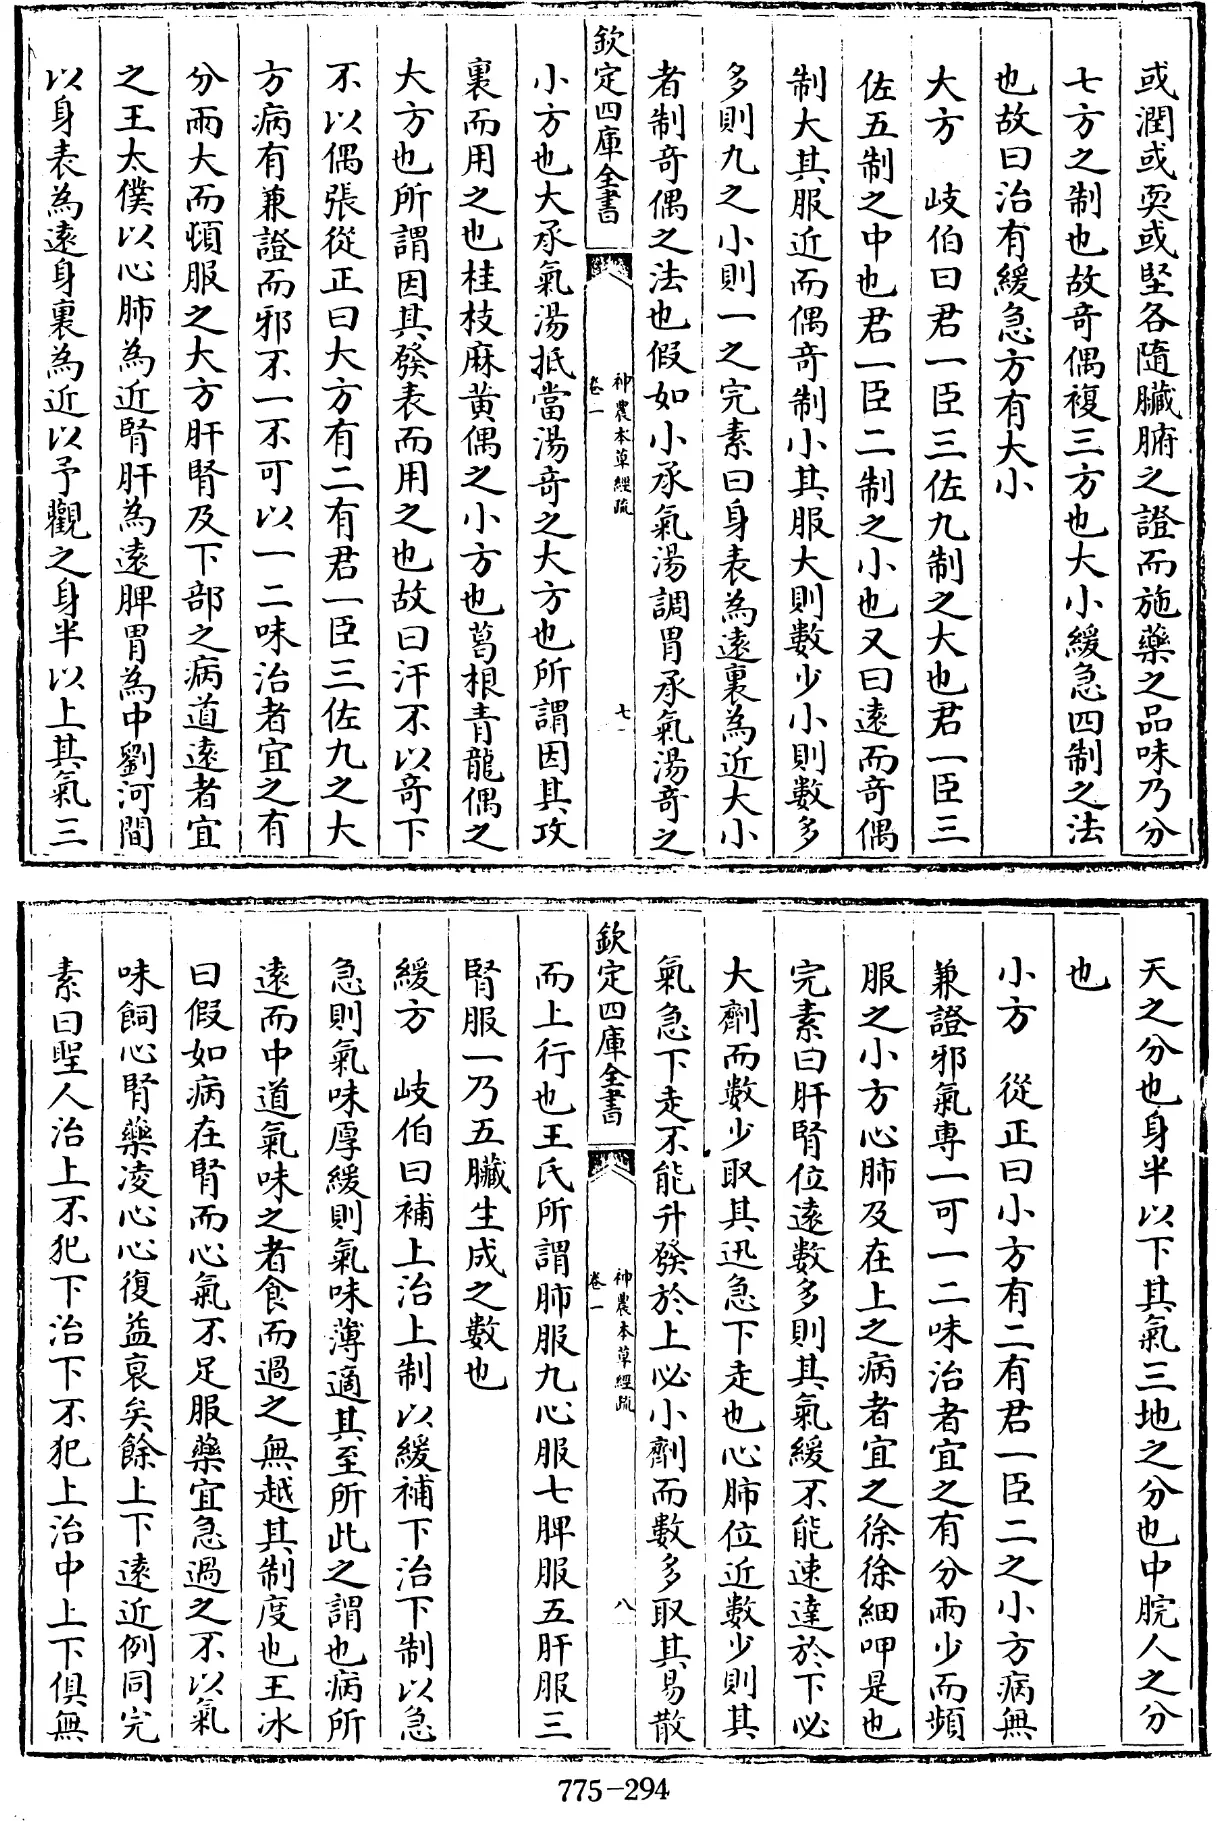 或潤或耎或堅各隨臟腑之證而施藥之品味乃分
七方之制也故奇偶複三方也大小緩急四制之法
也故曰治有緩急方有大小
大方　岐伯曰君一臣三佐九制之大也君一臣三
佐五制之中也君一臣二制之小也又曰遠而奇偶
制大其服近而偶奇制小其服大則數少小則數多
多則九之小則一之完素曰身表為遠裏為近大小
者制奇偶之法也假如小承氣湯調胃承氣湯奇之
欽定四庫全書
神農本草經疏
卷一
七
小方也大承氣湯抵當湯奇之大方也所謂因其攻
裏而用之也桂枝麻黄偶之小方也葛根青龍偶之
大方也所謂因其發表而用之也故曰汗不以奇下
不以偶張從正曰大方有二有君一臣三佐九之大
方病有兼證而邪不一不可以一二味治者宜之有
分兩大而頓服之大方肝腎及下部之病道遠者宜
之王太僕以心肺為近腎肝為遠脾胃為中劉河間
以身表為遠身裏為近以予觀之身半以上其氣三
天之分也身半以下其氣三地之分也中脘人之分
也
小方　從正曰小方有二有君一臣二之小方病無
兼證邪氣專一可一二味治者宜之有分兩少而頻
服之小方心肺及在上之病者宜之徐徐細呷是也
完素曰肝腎位遠數多則其氣緩不能速達於下必
大劑而數少取其迅急下走也心肺位近數少則其
氣急下走不能升發於上必小劑而數多取其易散
欽定四庫全書
神農本草經疏
卷一
八
而上行也王氏所謂肺服九心服七脾服五肝服三
腎服一乃五臟生成之數也
緩方　岐伯曰補上治上制以緩補下治下制以急
急則氣味厚緩則氣味薄適其至所此之謂也病所
遠而中道氣味之者食而過之無越其制度也王冰
曰假如病在腎而心氣不足服藥宜急過之不以氣
味飼心腎藥凌心心復益衰矣餘上下遠近例同完
素曰聖人治上不犯下治下不犯上治中上下俱無
775-294